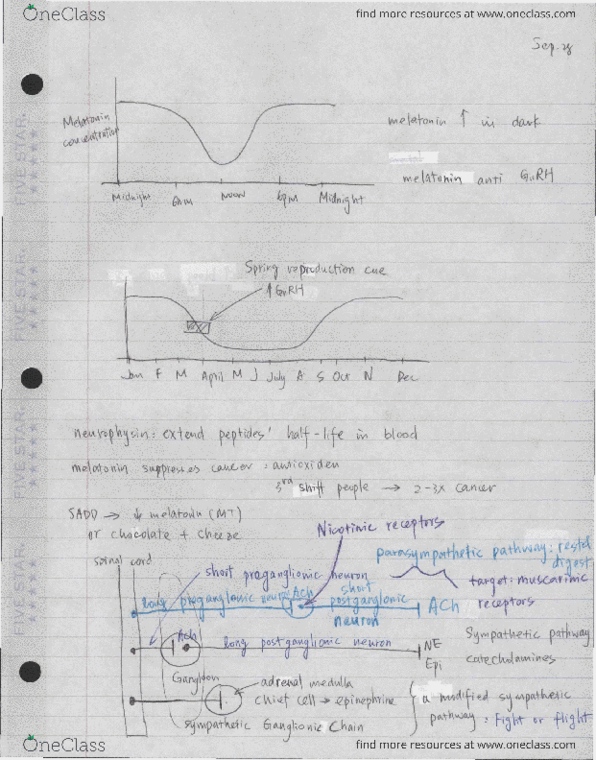 OneClass
find more resources at www.oneclass.com
Sep.28
Melatonin
concentration
melatonin ↑ in dark
melatonin anti GnRH
Midnight 6am noon 6pm Midnight
Spring reproduction cue
↑GnRH
Jan F M April M J July A S Oct N Dec
neurophysin: extend peptides' half-life in blood
melatonin suppresses cancer: antioxiden
3rd shift people → 2-3x cancer
SADD → ↓ melatonin (MT)
or chocolate + cheese
Nicotinic receptors
parasympathetic pathway: rest&
digest
spinal cord
short preganglionic neuron
target: muscarinic
receptors
long preganglionic neuron ACh short
postganglionic
neuron
ACh
Ach
long postganglionic neuron
NE
Epi
Sympathetic pathway
catecholamines
Ganglion
adrenal medulla
chief cell → epinephrine
a modified sympathetic
pathway: Fight or flight
sympathetic Ganglionic Chain
FIVE STAR.
FIVE STAR.
FIVE STAR.
OneClass
find more resources at www.oneclass.com